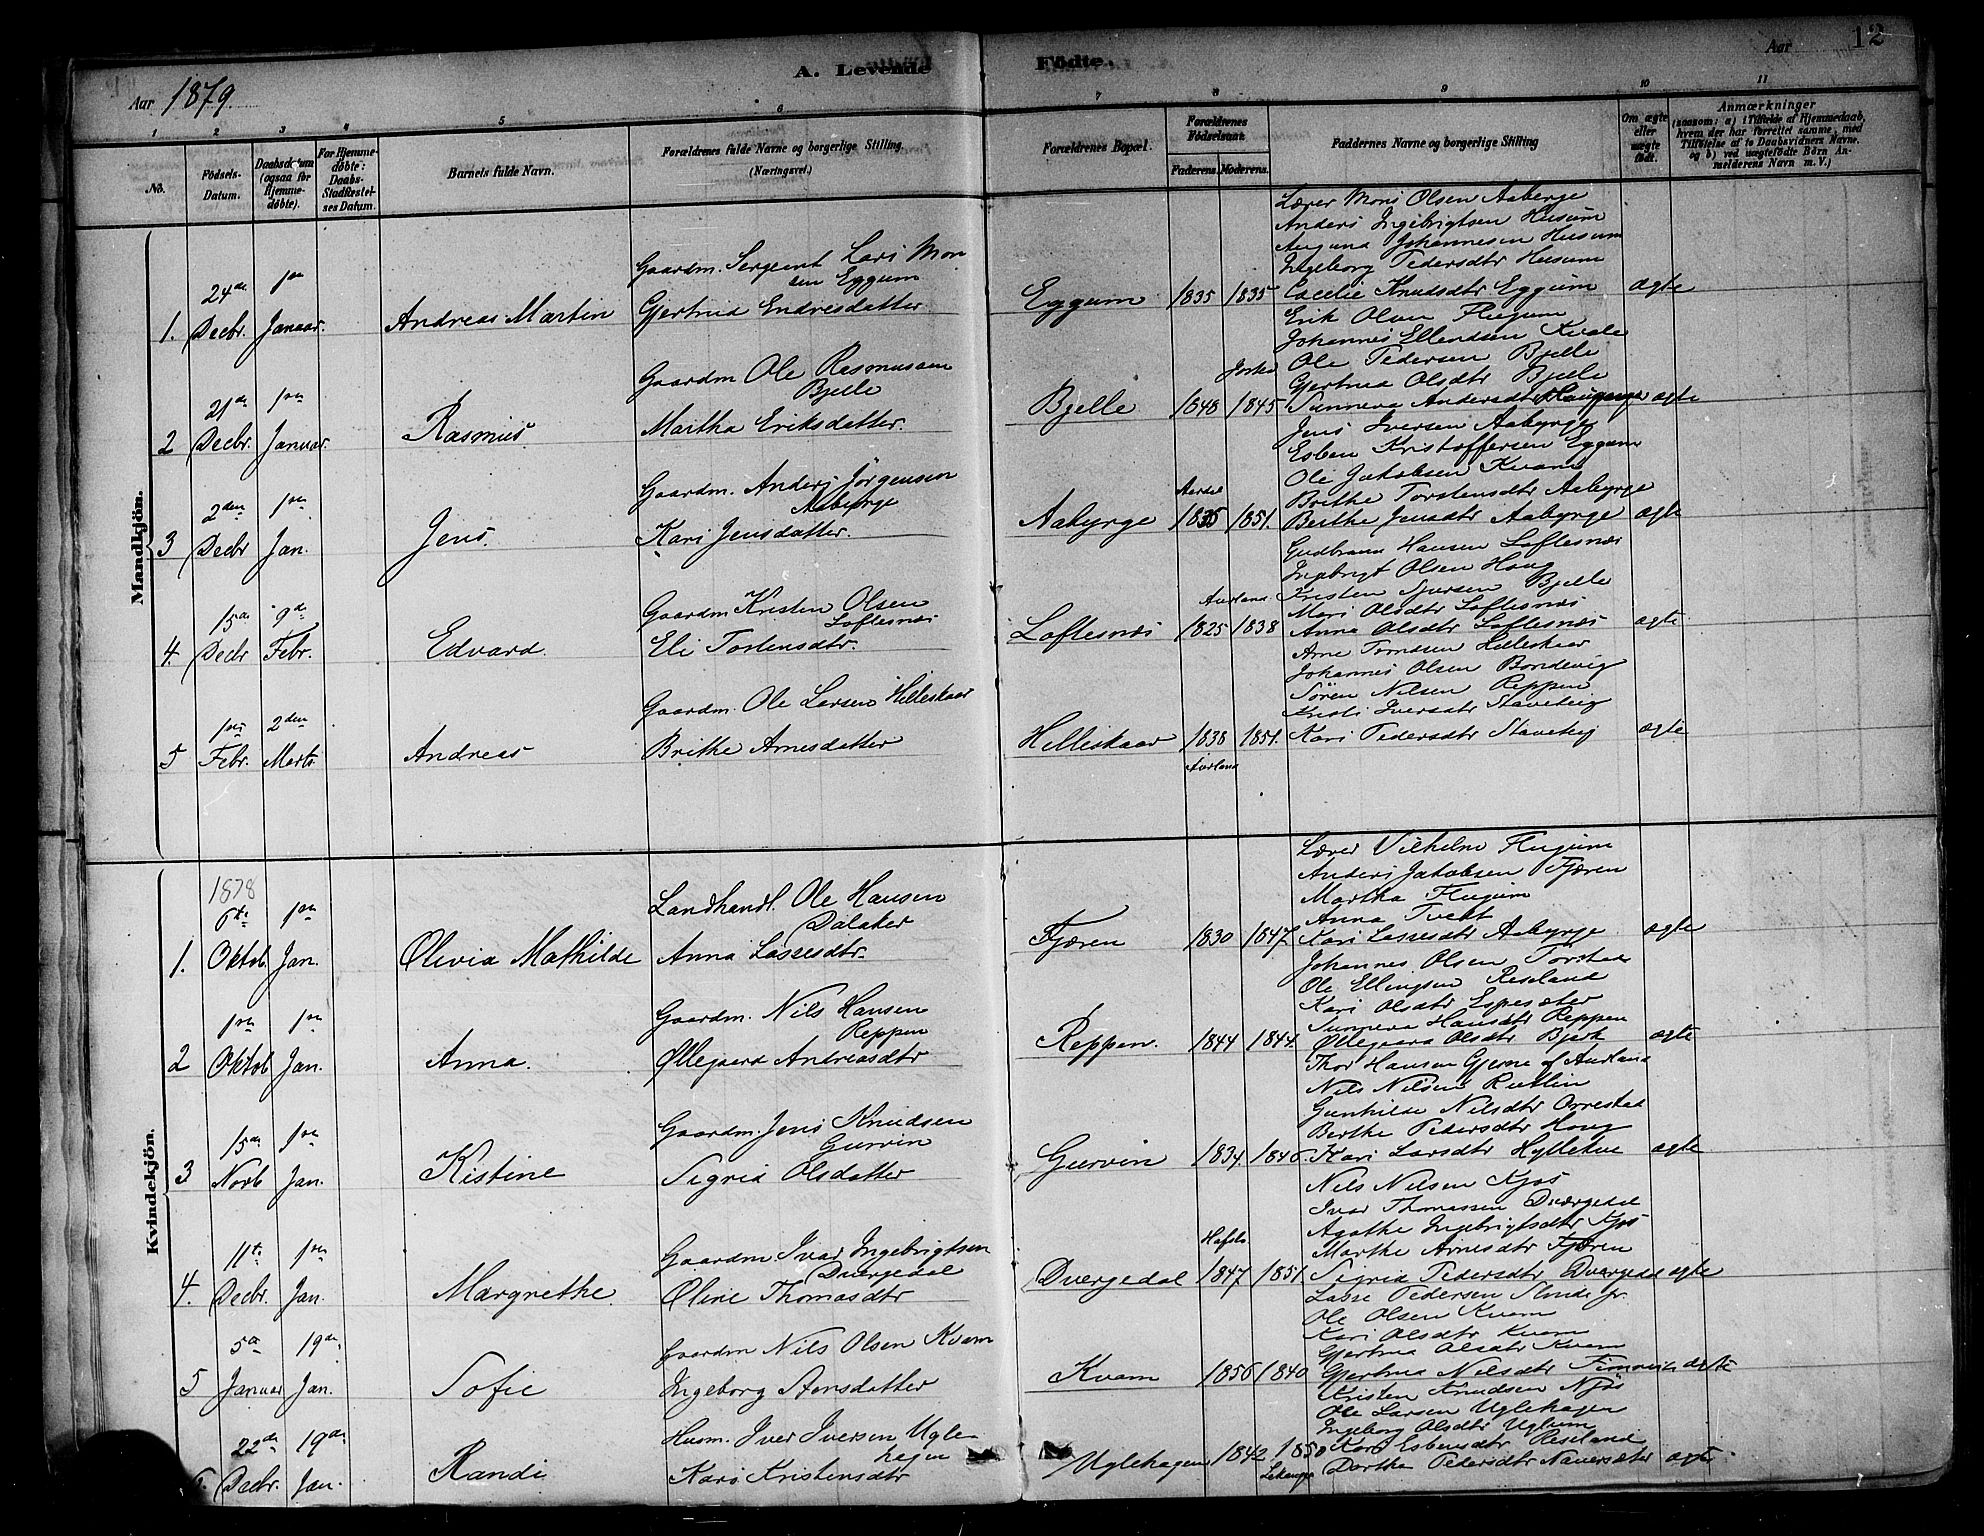 12
A. Levende Fødte.
Aar 1879. Aar
1 2 3 4 5 6 7 8 9 10 11
No.
Fødsels-Datum.
Daabsdatum (ogsaa for Hjemmedøbte).
For Hjemmedøbte: Daabs-Stadfæstelses Datum.
Barnets fulde Navn.
Forældrenes fulde Navne og borgerlige Stilling. (Næringsvei.)
Forældrenes Bopæl.
Forældrenes Fødselsaar.
Faderens. Moderens.
Faddernes Navne og borgerlige Stilling
Om ægte eller uægte født.
Anmærkninger
(saasom: a) i Tilfælde af Hjemmedaab, hvem der har forrettet samme, med Tilføielse af to Daabsvidners Navne, og b) ved uægtefødte Børn Anmelderens Navn m. V.)
Mandkjön.
1. 24de Decbr. 1ste Januar. Andreas Martin
Gaardm. Sergeant Lars Mon
sen Eggum
Gjertrud Endresdatter.
Eggum 1835 1835 ægte
Lærer Mons Olsen Aaberge
Anders Ingebrigtsen Husum
Augund Johannesen Husum
Ingeborg Pedersdtr Husum
Cæcilie Knudsdtr Eggum
2 21de Decbr. 1ste Januar. Rasmus
Gaardm Ole Rasmussen
Bjelle
Martha Eriksdatter.
Bjelle 1848 Joste 1845 ægte
Erik Olsen Flugum
Johannes Ellendsen Kvale
Ole Pedersen Bjelle
Gjertrud Olsdtr Bjelle
Sunneva Andersdtr Haugene
3 2den Decbr 1ste Jan. Jens.
Gaardm. Anders Jörgensen
Aabyrge
Kari Jensdatter.
Aabyrge Aardal 1835 1851. ægte
Jens Iversen Aabyrge
Esben Kristoffersen Eggum
Ole Jakobsen Kvam
Brithe Torstensdtr Aabyrge
Berthe Jensdtr Aabyrge
4. 15de Decbr 9de Febr. Edvard.
Gaardm Kristen Olsen
Loftesnæs
Eli Torstensdtr.
Loftesnæs 1825 Aurland. 1838 ægte.
Gudbrand Hansen Loftesnæs
Ingebrigt Olsen Haug
Kristen Sjursen Bjelle
Mari Olsdtr Loftesnæs
Anna Olsdtr Loftesnæs
5 1ste Febr. 2den Marts Andreas
Gaardm. Ole Larsen Hilleskaar
Brithe Arnesdatter
Hilleskaar 1838 Aurland 1851. ægte
Arne Tomasen Hilleskaar
Johannes Olsen Bondevig
Sören Nilsen Reppen
Kristi Iversdtr Staveteig
Kari Pedersdtr Staveteig
Kvindekjön.
1878
1. 6te Oktob 1ste Jan. Olivia Mathilde
Landhandl. Ole Hansen
Dalaker
Anna Lassesdtr.
Fjæren 1830 1847. ægte
Lærer Vilhelm Flugum
Anders Jakobsen Fjæren
Martha Flugum
Anna Tvedt
Kari Lassesdtr Aabyrge
2 1ste Oktob 1ste Jan. Anna.
Gaardm. Nils Hansen
Reppen
Øllegaard Andreasdtr
Reppen. 1844 1844. ægte
Johannes Olsen Torstad
Ole Ellingsen Reseland
Kari Olsdtr Espesæter
Sunneva Hansdtr Reppen
Øllegaard Olsdtr Bjerk
3 15de Novb 1ste Jan. Kistine
Gaardm. Jens Knudsen
Gurvin
Sigrid Olsdatter
Gurvin 1834. 1846. ægte
Thor Hansen Gjerne af Aurland
Nils Nilsen Rutlin
Gunhilde Nilsdtr Orrestad
Berthe Pedersdtr Haug
Kari Larsdtr Hylletun
4. 11te Decbr. 1ste Jan. Margrethe.
Gaardm Ivar Ingebrigtsen
Dvergedal
Oline Thomasdtr
Dvergedal Hafslo 1847 1851 ægte
Nils Nilsen Kjøs
Ivar Thomassen Dværgedal
Agathe Ingebrigtsdtr Kjøs
Marthe Arnesdtr Fjæren
Sigrid Pedersdtr Dvergedal
5 5te Januar 19de Jan. Sofie
Gaardm Nils Olsen Kvam
Ingeborg Stensdatter
Kvam 1856 1840 ægte
Lasse Pedersen Slinde jr.
Ole Olsen Kvam
Kari Olsdtr Kvam
Gjertrud Olsdtr Kvam
Gjertrud Nilsdtr
6. 22de Decbr. 19de Jan. Randi
Husm. Iver Iversen Ugle
hagen
Kari Kristensdtr
Uglehagen 1842 1850 Leikanger ægte.
Kristen Knudsen Njøs
Ole Larsen Uglehagen
Ingeborg Olsdtr Uglum
Kari Esbensdtr Reseland
Dorthe Pedersdtr Navarsæter